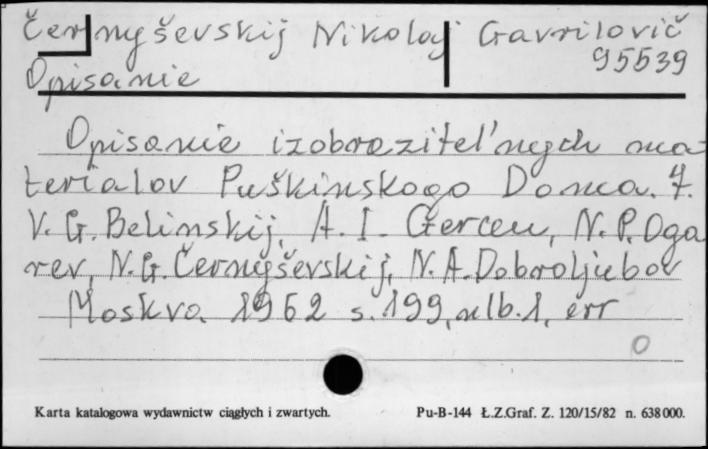 Černyševskij Nikolaj Gavrilovič
95539
Opisanie
Opisanie izobrazitel'nych ma-
terialov Puškinskogo Doma. 7.
V. G. Belinskij, A. I. Gercen, N. P. Oga
rev, N. G. Černyševskij, N. A. Dobroljubov
Moskva 1962 s. 199, nlb. 1, err
0
Karta katalogowa wydawnictw ciągłych i zwartych.
Pu-B-144 Ł.Z.Graf. Z. 120/15/82 n. 638000.